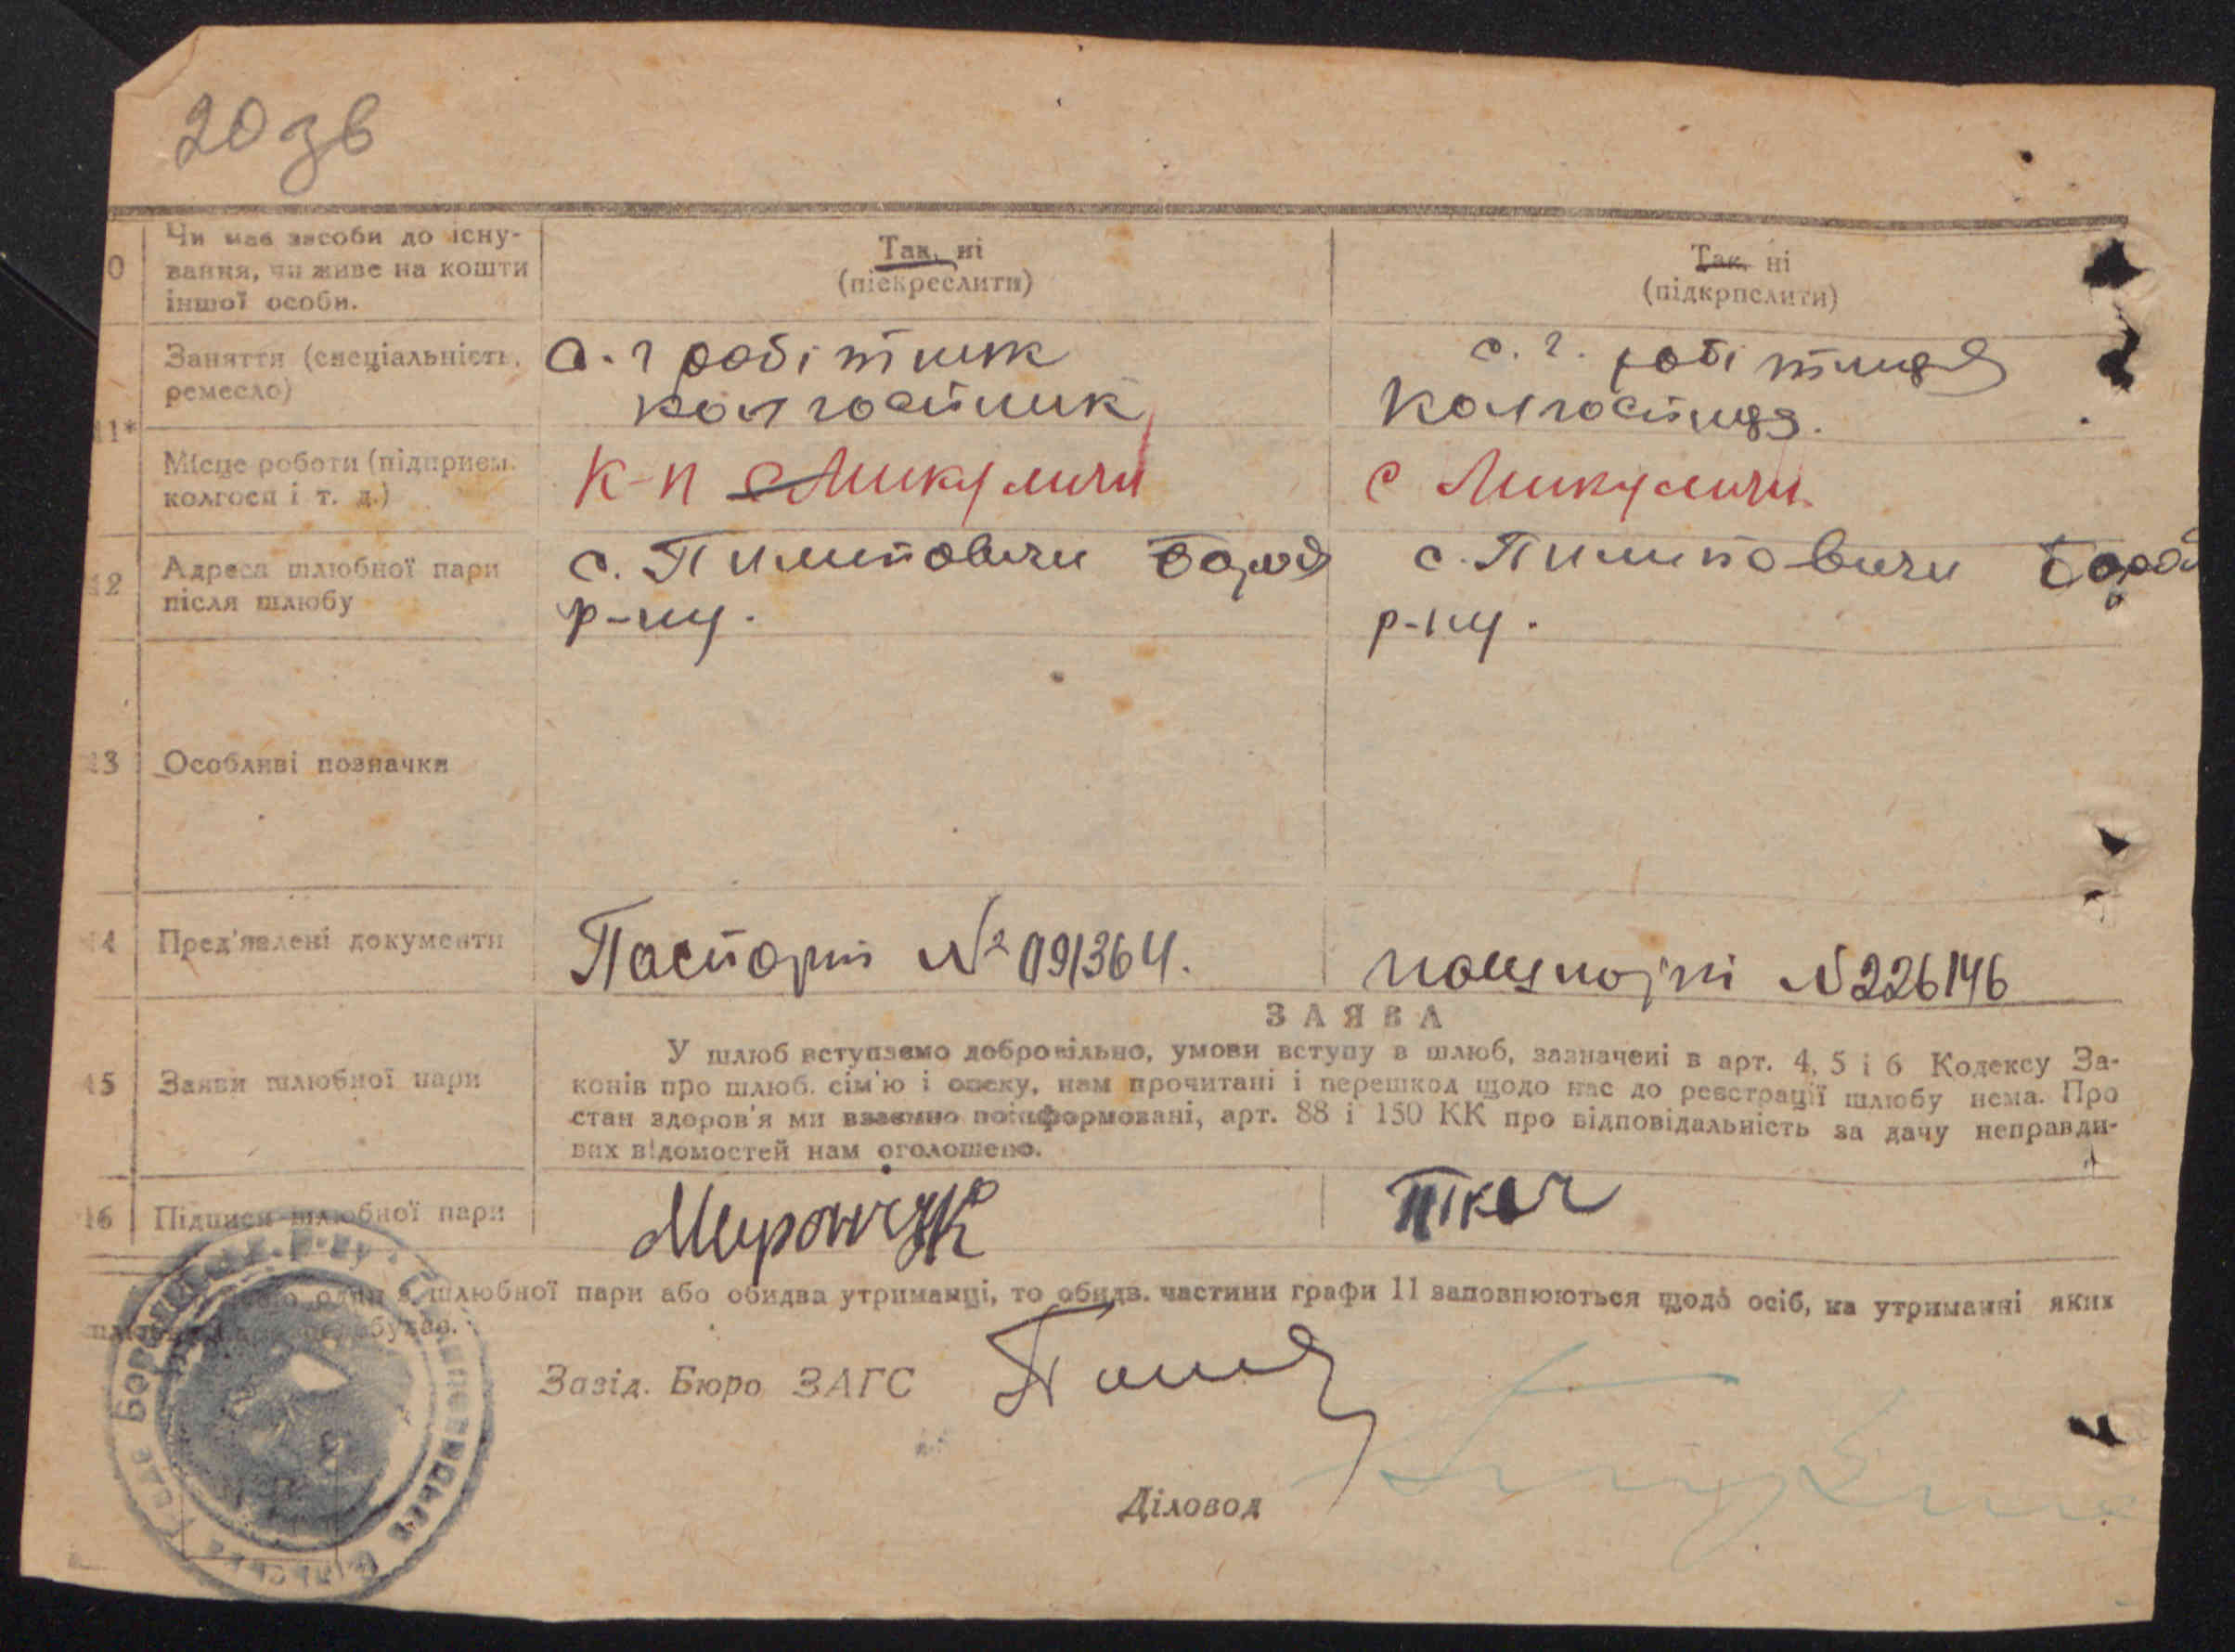 20 зв
0 Чи має засоби до існу-
вання, чи живе на кошти
іншої особи.
Так, ні
(піскреслити)
Так, ні
(підкрпслити)
11*
Заняття (спеціальність,
ремесло)
с. г робітник
колгоспник
с. г. робітниця
Колгоспниця.
Місце роботи (підприєм.
колгосп і т. д.)
к-п с Микуличи
с Микуличи
12 Адреса шлюбної пари
після шлюбу
с. Пилиповичи Бород
р-ну.
с. Пилиповичи Бород
р-ну.
13 Особливі позначки
14 Пред'явлені документи
Паспорт № 091364.
N 226146
15 Заяви шлюбної пари
ЗАЯВА
У шлюб вступаємо добровільно, умови вступу в шлюб, зазначені в арт. 4, 5 і 6 Кодексу За-
конів про шлюб. сім'ю і опеку, нам прочитані і перешкод щодо нас до реєстрації шлюбу нема. Про
стан здоров'я ми взаємно поінформовані, арт. 88 і 150 КК про відповідальність за дачу неправди-
вих відомостей нам оголошено.
16 Підписи шлюбної пари
Мирончук
Ткач
один з шлюбної пари або обидва утриманці, то обидв. частини графи 11 заповнюються щодо осіб, на утриманні яких
Завід. Бюро ЗАГС
Діловод